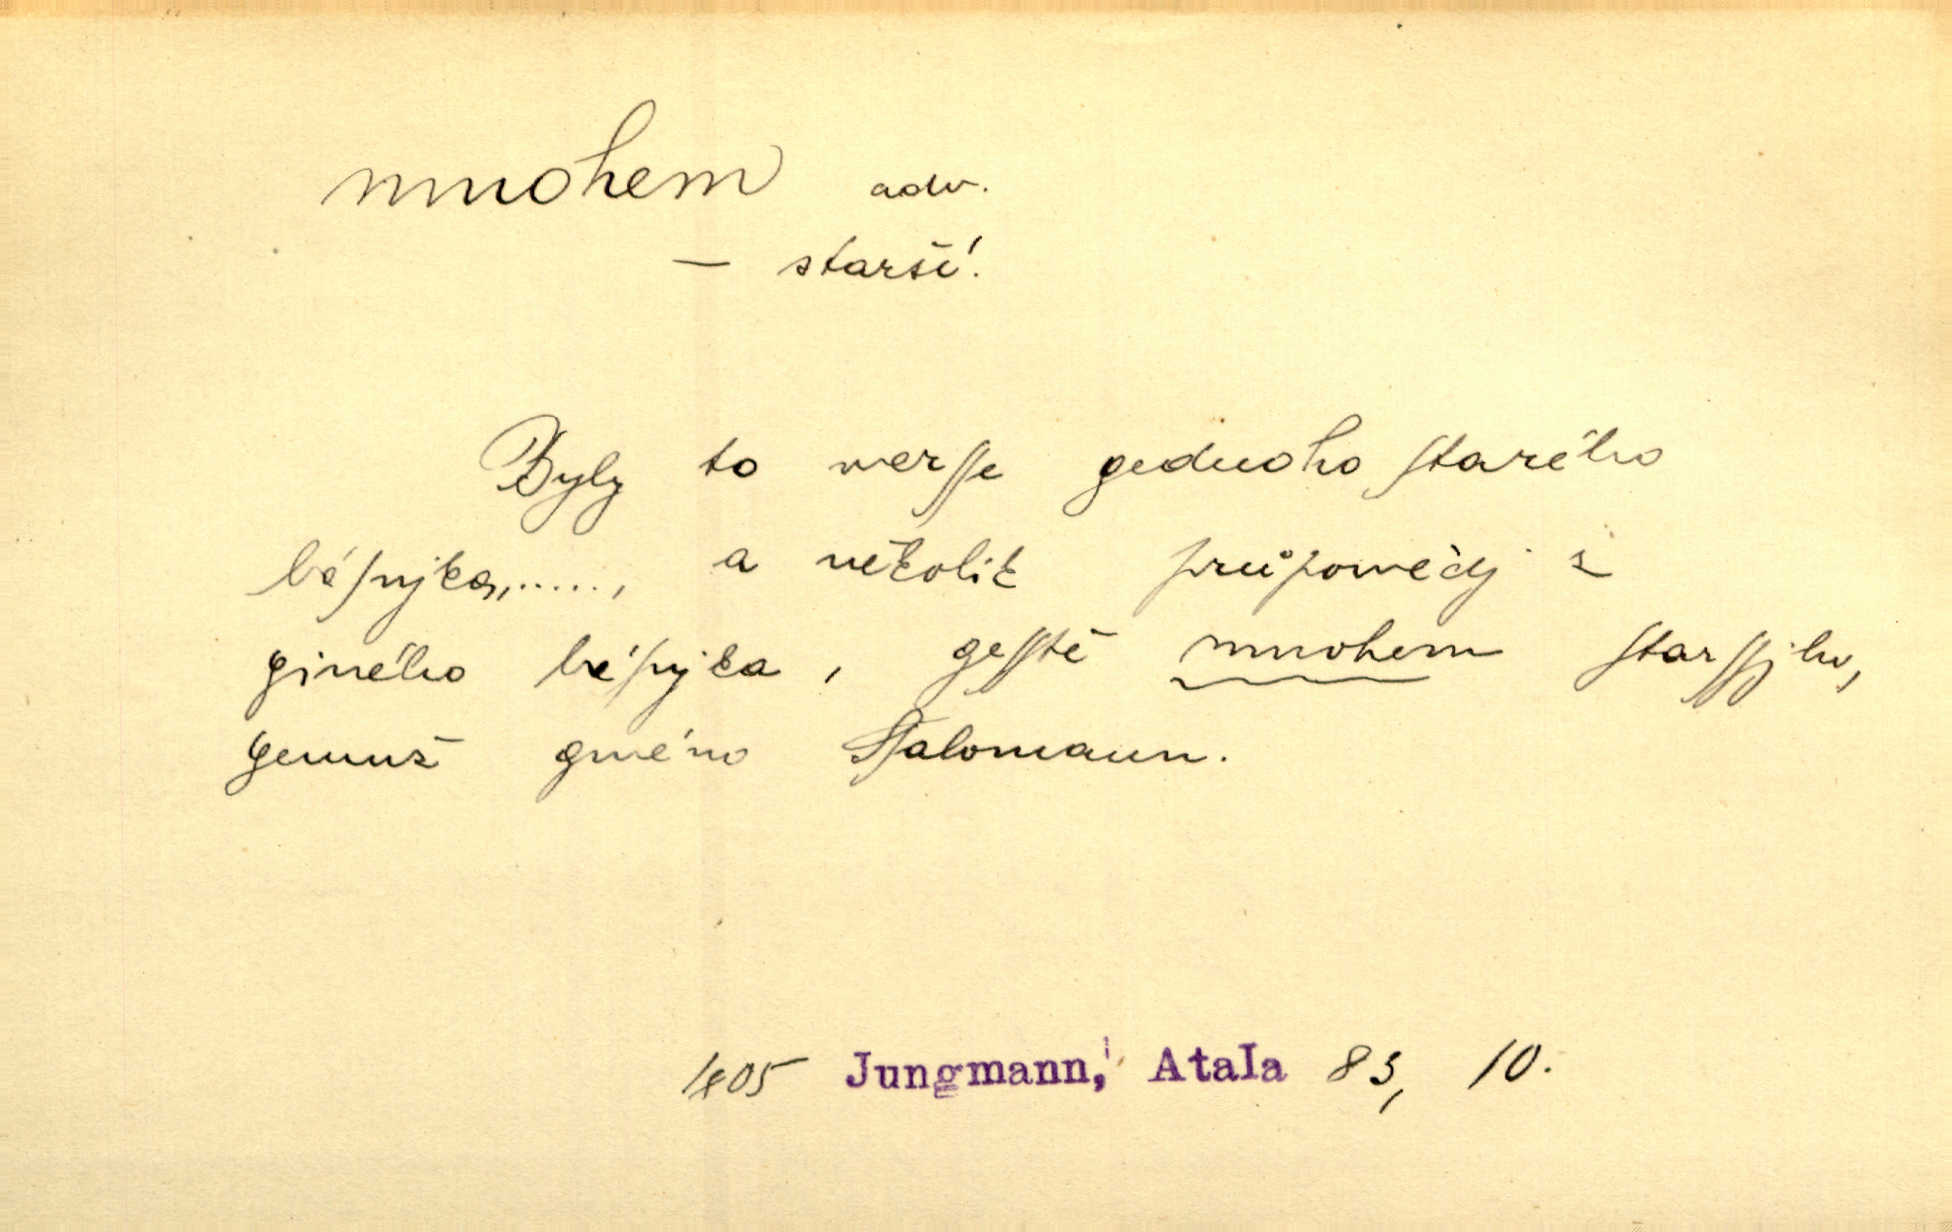 mnohem adv.
— starší.
Byly to werſſe gednoho ſtarého
báſnjka,....., a několik průpowědj z
giného báſnjka, geſſtě mnohem ſtarſſjho,
gemuž gméno Ssalomaun.
1805 Jungmann, Atala 83, 10.